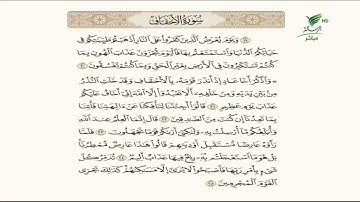 سُورَةُ الأَحْقَافِ
وَيَوْمَ يُعْرَضُ الَّذِينَ كَفَرُوا عَلَى النَّارِ أَذْهَبْتُمْ طَيِّبَاتِكُمْ فِي
حَيَاتِكُمُ الدُّنْيَا وَاسْتَمْتَعْتُمْ بِهَا فَالْيَوْمَ تُجْزَوْنَ عَذَابَ الْهُونِ بِمَا
كُنْتُمْ تَسْتَكْبِرُونَ فِي الْأَرْضِ بِغَيْرِ الْحَقِّ وَبِمَا كُنْتُمْ تَفْسُقُونَ ٢٠
وَاذْكُرْ أَخَا عَادٍ إِذْ أَنْذَرَ قَوْمَهُ بِالْأَحْقَافِ وَقَدْ خَلَتِ النُّذُرُ
مِنْ بَيْنِ يَدَيْهِ وَمِنْ خَلْفِهِ أَلَّا تَعْبُدُوا إِلَّا اللَّهَ إِنِّي أَخَافُ عَلَيْكُمْ
عَذَابَ يَوْمٍ عَظِيمٍ ٢١ قَالُوا أَجِئْتَنَا لِتَأْفِكَنَا عَنْ آلِهَتِنَا فَأْتِنَا
بِمَا تَعِدُنَا إِنْ كُنْتَ مِنَ الصَّادِقِينَ ٢٢ قَالَ إِنَّمَا الْعِلْمُ عِنْدَ اللَّهِ
وَأُبَلِّغُكُمْ مَا أُرْسِلْتُ بِهِ وَلَكِنِّي أَرَاكُمْ قَوْمًا تَجْهَلُونَ ٢٣ فَلَمَّا
رَأَوْهُ عَارِضًا مُسْتَقْبِلَ أَوْدِيَتِهِمْ قَالُوا هَذَا عَارِضٌ مُمْطِرُنَا
بَلْ هُوَ مَا اسْتَعْجَلْتُمْ بِهِ رِيحٌ فِيهَا عَذَابٌ أَلِيمٌ ٢٤ تُدَمِّرُ كُلَّ
شَيْءٍ بِأَمْرِ رَبِّهَا فَأَصْبَحُوا لَا يُرَى إِلَّا مَسَاكِنُهُمْ كَذَلِكَ نَجْزِي
الْقَوْمَ الْمُجْرِمِينَ ٢٥
HD
مباشر